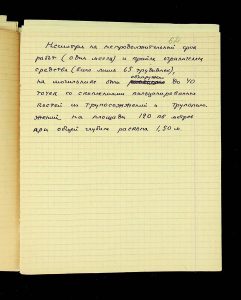 62
Несмотря на непродолжительный срок
работ (один месяц) и крайне ограниченные
средства (было лишь 65 трудодней),
на могильнике они обнаружили до 40
точек со скоплениями кальцинированных
костей из трупосожжений и трупополо-
жений на площади 120 кв метров
при общей глубине раскопа 1,50 м.